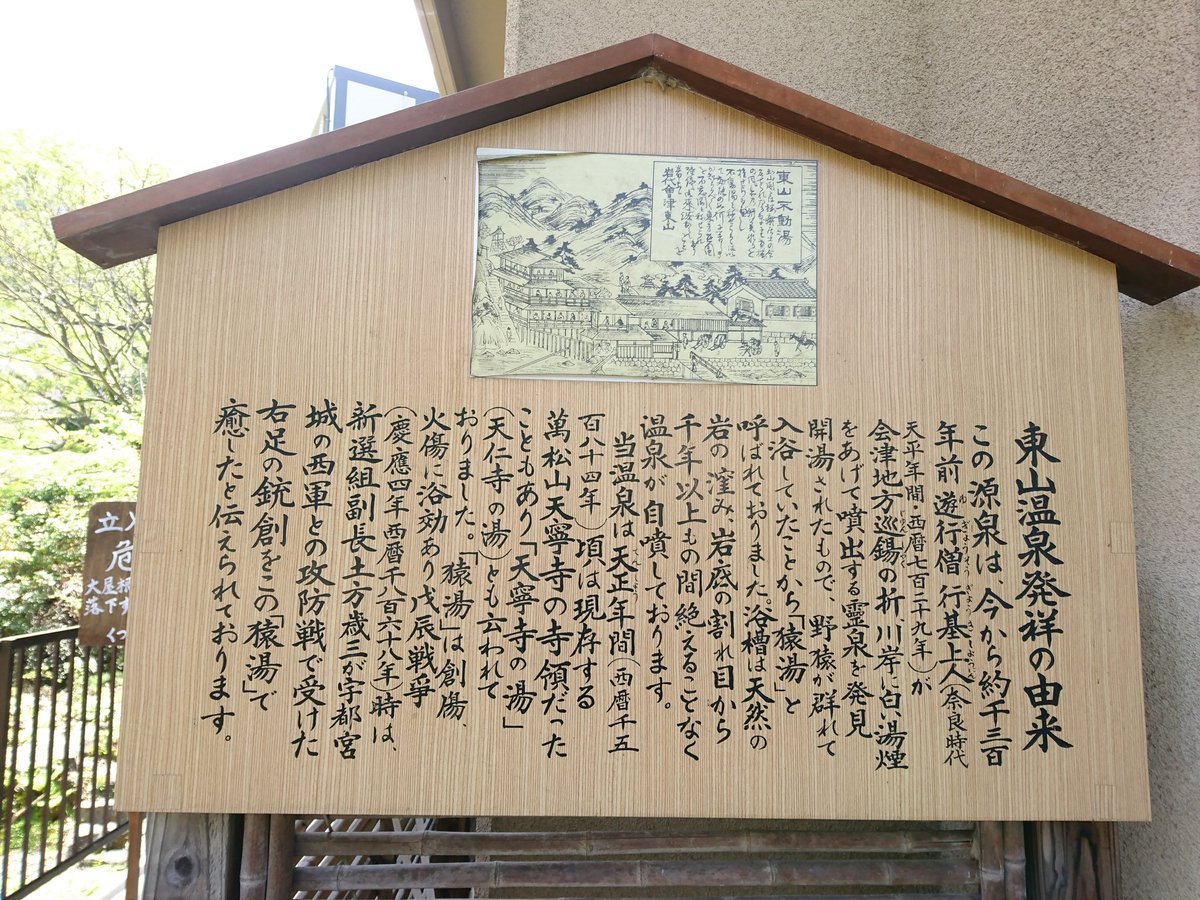 東山温泉発祥の由来
この源泉は、今から約千三百
年前 遊行僧 行基上人(奈良時代
天平年間・西暦七百二十九年)が
会津地方巡錫の折、川岸に白い湯煙
をあげて噴出する靈泉を発見
開湯されたもので、野猿が群れて
入浴していたことから「猿湯」と
呼ばれておりました。浴槽は天然の
岩の窪み、岩底の割れ目から
千年以上もの間絶えることなく
温泉が自噴しております。
当温泉は天正年間(西暦千五
百八十四年)頃は現存する
萬松山天寧寺の寺領だった
こともあり「天寧寺の湯」
(天仁寺の湯)とも云われて
おりました。「猿湯」は創傷、
火傷に浴効あり戊辰戦爭
(慶應四年 西暦千八百六十八年)時は、
新選組副長土方歳三が宇都宮
城の西軍との攻防戦で受けた
右足の銃創をこの「猿湯」で
癒したと伝えられております。
東山不動湯
岩代會津東山
立入
危
大屋根
落下す